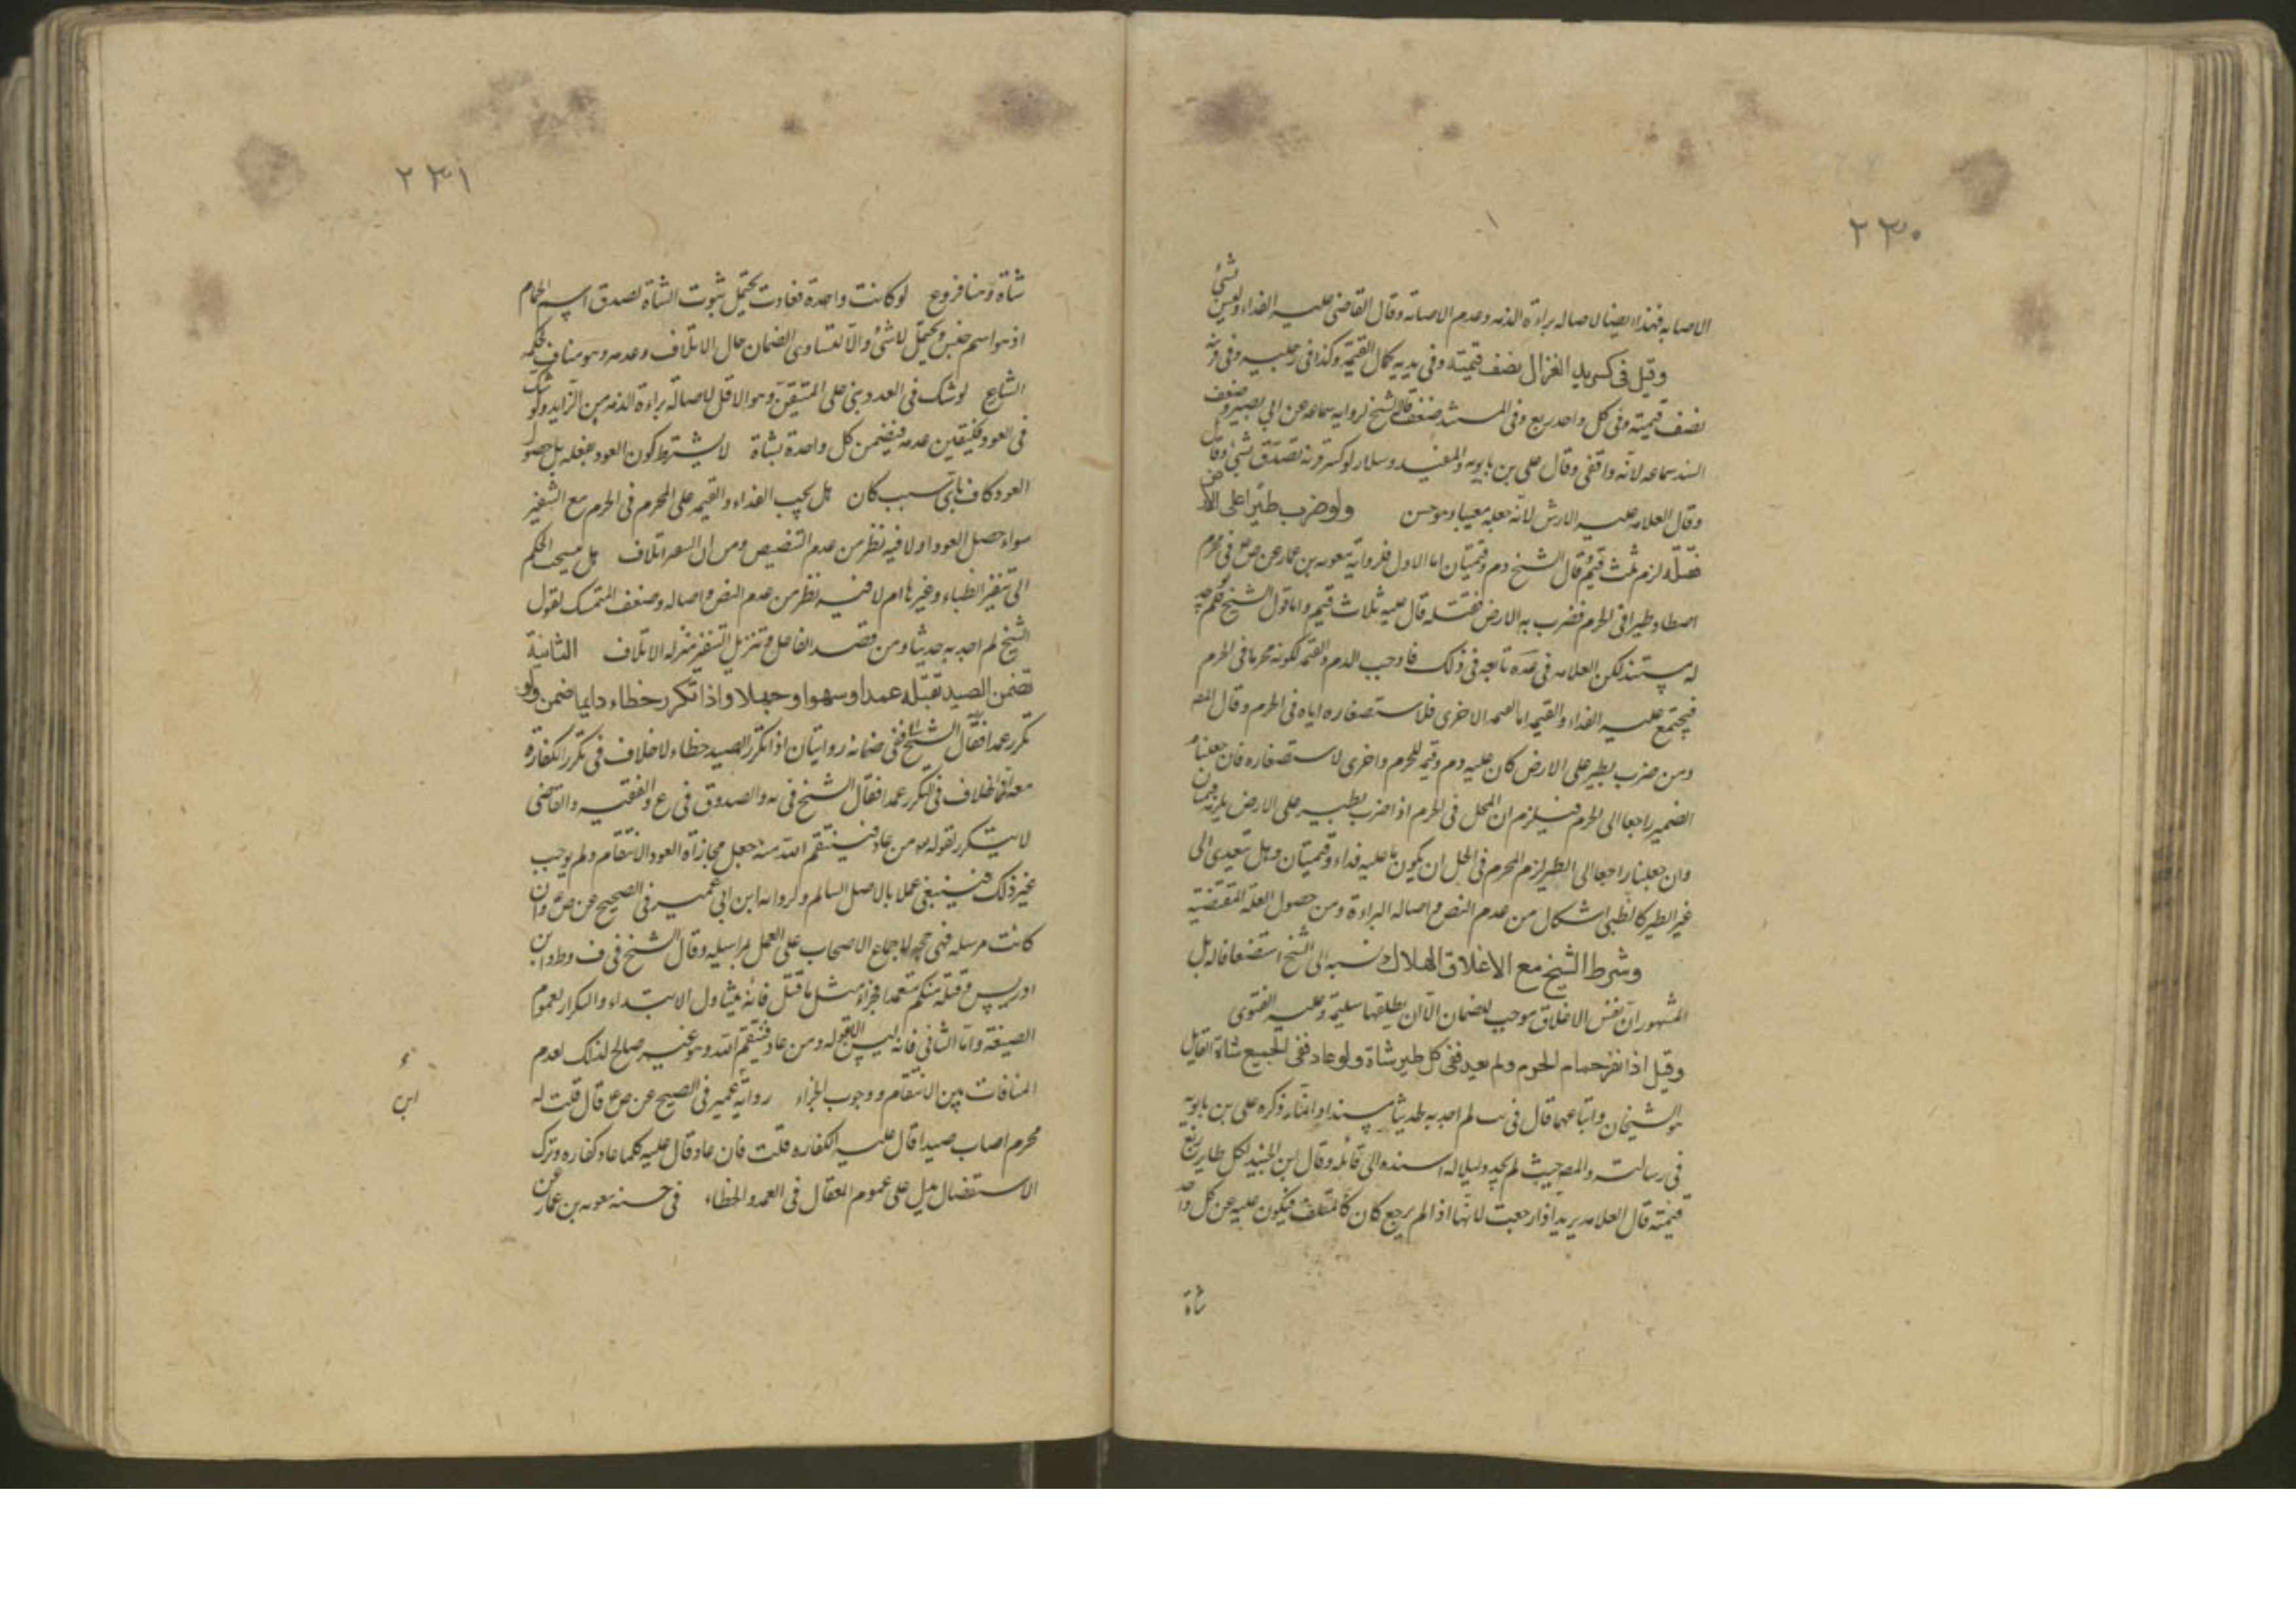 ٢٣٠
الاصابه فهنا ايضا لاصاله براءة الذمه وعدم الاصابه وقال القاضى عليه الفداء وليس شئ
وقيل فى كسر يد الغزال نصف قيمته وفى يديه كمال القيمة وكذا فى رجليه وفى قرنيه
نصف قيمته وفى كل واحد ربع وفى المستند ضعف قاله الشيخ لروايه سماعه عن ابى بصير وضعف
السند سماعه لانه واقفى وقال على بن بابويه والمفيد وسلار لو كسر قرنه تصدق بشئ وقال
وقال العلامه عليه الارش لانه جعله معيبا وهو حسن ولو ضرب طيرا على الارض
فقتله لزم ثلث قيم قال الشيخ دم وقيمتان اما الاول فلرواية معويه بن عمار عن ص ع فى محرم
اصطاد طيرا فى الحرم فضرب به الارض فقتله قال عليه ثلاث قيم واما قول الشيخ فلم نجد
له مستند لكن العلامه فى عده تابعه فى ذلك فاوجب الدم والقيمه لكونه محرما فى الحرم
فيجتمع عليه الفداء والقيمه اما القيمه الاخرى فلاستصغاره اياه فى الحرم وقال المص
ومن ضرب بطير على الارض كان عليه دم وقيمة للحرم واخرى لاستصغاره فان جعلنا
الضمير راجعا الى الحرم فيلزم ان المحل فى الحرم اذا ضرب بطير على الارض يلزمه قيمتان
وان جعلنا راجعا الى الطير لزم المحرم فى الحل ان يكون ما عليه فداء وقيمتان وهل تعدى الى
غير الطير كالظبى اشكال من عدم النص واصاله البراءة ومن حصول العلة المقتضية
وشرط الشيخ مع الاغلاق الهلاك نسبه الى الشيخ استضعافا له بل
المشهور ان نفس الاغلاق موجب للضمان الا ان يطلقها سليمة وعليه الفتوى
وقيل اذا نفر حمام الحرم ولم يعد ففى كل طير شاة ولو عاد ففى الجميع شاة القايل
هو الشيخان واتباعهما قال فى يب لم اجد به حديثا مسندا وانما ذكره على بن بابويه
فى رسالته والمص حيث لم يجد دليلا له اسنده الى قائله وقال ابن الجنيد لكل طاير ربع
قيمته قال العلامه يريد اذا رجعت لانها اذا لم يرجع كان كالمتلف فيكون عليه عن كل واحد
شاة
٢٣١
شاة وهنا فروع لو كانت واحدة فعادت يحتمل ثبوت الشاة لصدق اسم الحمام
اذ هو اسم جنس ويحتمل لا شئ والا لتساوى الضمان حال الاتلاف وعدمه وهو مناف لحكمه
الشارع لو شك فى العدد بنى على المتيقن وهو الاقل لاصالة براءة الذمه من الزايد ولو شك
فى العود فليتيقن عدمه فيضمن كل واحدة بشاة لا يشترط كون العود بفعله بل حصول
العود كاف باى سبب كان هل يجب الفداء والقيمه على المحرم فى الحرم مع التنفير
سواء حصل العود او لا فيه نظر من عدم التنصيص ومن ان التنفير اتلاف هل ينسحب الحكم
الى تنفير الظباء وغيرها ام لا فيه نظر من عدم النص واصاله وضعف المتمسك لقول
الشيخ لم اجد به حديثا ومن قصد الفاعل وتنزيل التنفير منزله الاتلاف الثانية
تضمن الصيد بقتله عمدا وسهوا وجهلا واذا تكرر خطاء دايما ضمن ولو
تكرر عمدا فقال الشيخ ففى ضمانه روايتان اذا تكرر الصيد خطاء لا خلاف فى تكرر الكفارة
معه انما الخلاف فى التكرر عمدا فقال الشيخ فى يه والصدوق فى ع والفقيه والقاضى
لا يتكرر لقوله ومن عاد فينتقم الله منه جعل مجازاة العود الانتقام ولم يوجب
غير ذلك فينبغى عملا بالاصل السالم ولرواية ابن ابى عمير فى الصحيح عن ص ع وان
كانت مرسله فهى حجه لاجماع الاصحاب على العمل بمراسيله وقال الشيخ فى ف وط وابن
ادريس وقتله منكم متعمدا فجزاء مثل ما قتل فانه يتناول الابتداء والتكرار بعموم
الصيغة واما الثانى فانه ليس الا قوله ومن عاد فينتقم الله وهو غير صالح لذلك لعدم
المنافات بين الانتقام ووجوب الجزاء رواية عمير فى الصحيح عن ص ع قال قلت له
ابن
محرم اصاب صيدا قال عليه الكفاره قلت فان عاد قال عليه كلما عاد كفاره وترك
الاستفصال يدل على عموم المقال فى العمد والخطاء فى حسنه معويه بن عمار عن